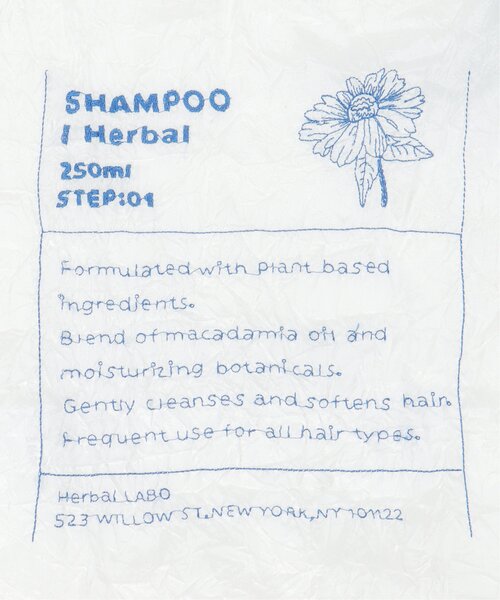 SHAMPOO
/ Herbal
250ml
STEP:01
Formulated with plant based
ingredients.
Blend of macadamia oil and
moisturizing botanicals.
Gently cleanses and softens hair.
Frequent use for all hair types.
Herbal LABO
523 WILLOW ST.,NEW YORK,NY 101122